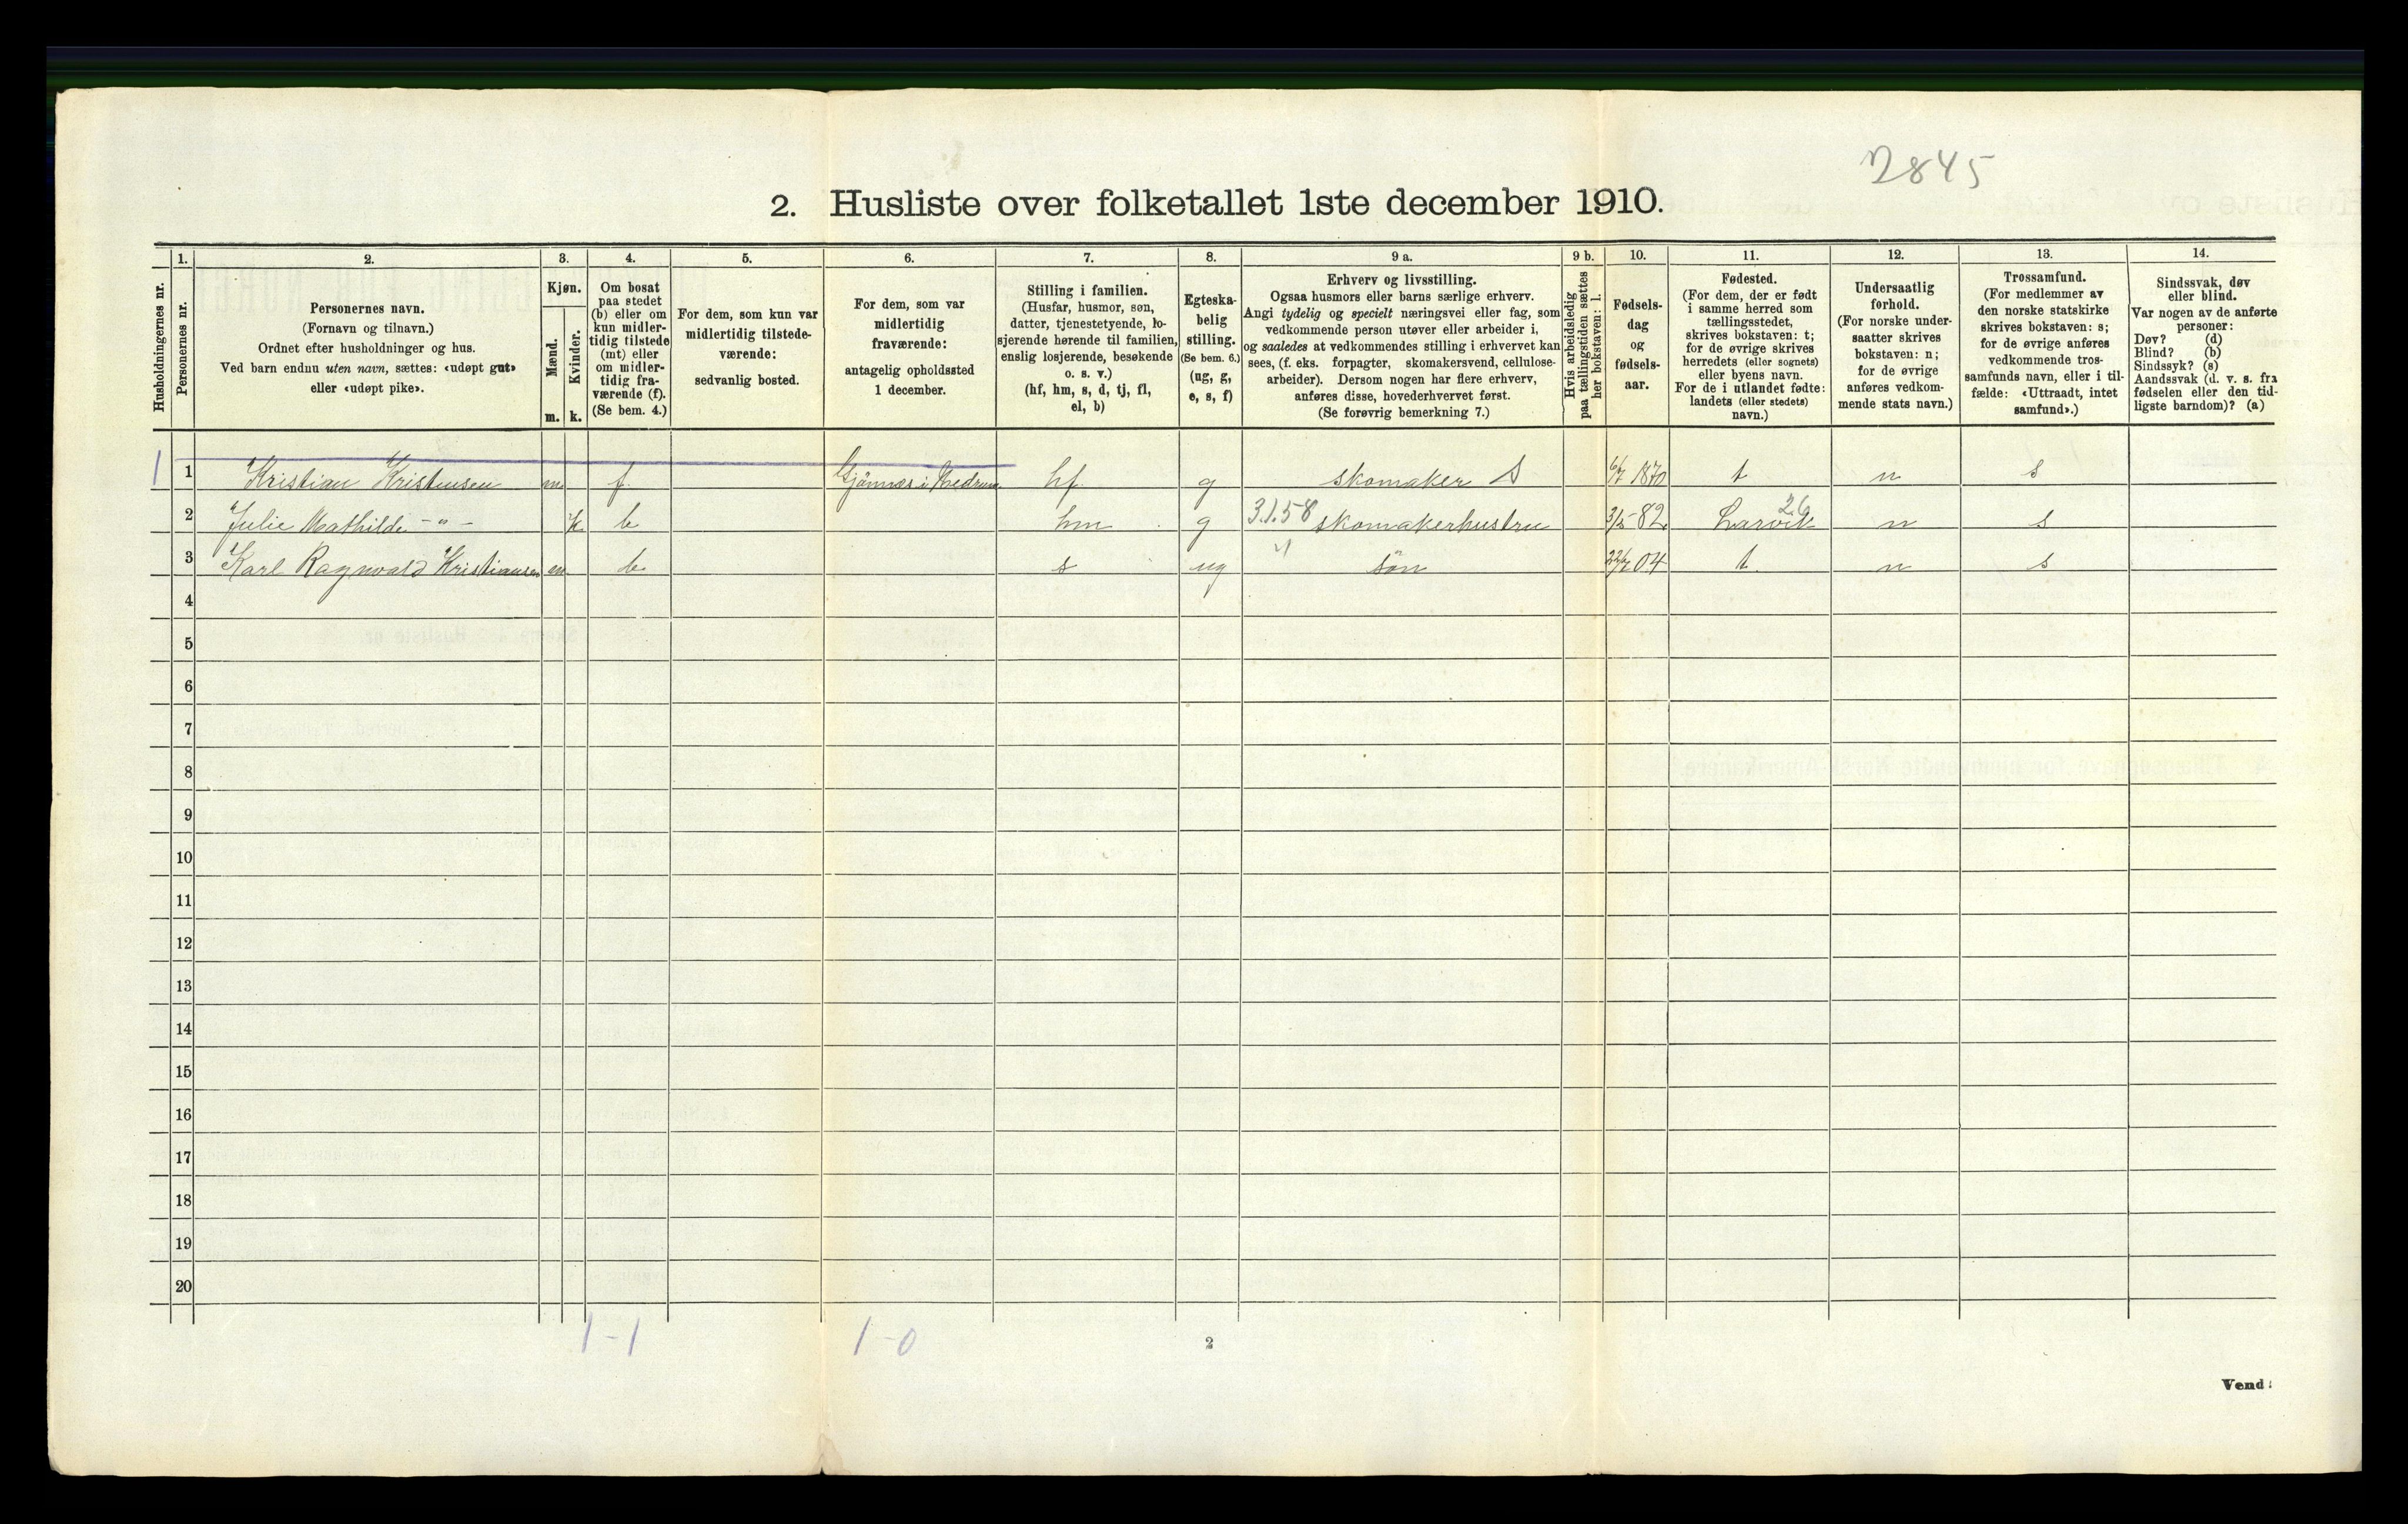 2845
2. Husliste over folketallet 1ste december 1910.
Husholdningernes nr.
1.
Personernes nr.
2.
Personernes navn.
(Fornavn og tilnavn.)
Ordnet efter husholdninger og hus.
Ved barn endnu uten navn, sættes: «udøpt gut»
eller «udøpt pike».
3.
Kjøn.
Mænd.
m.
Kvinder.
k.
4.
Om bosat
paa stedet
(b) eller om
kun midler-
tidig tilstede
(mt) eller
om midler-
tidig fra-
værende (f).
(Se bem. 4.)
5.
For dem, som kun var
midlertidig tilstede-
værende:
sedvanlig bosted.
6.
For dem, som var
midlertidig
fraværende:
antagelig opholdssted
1 december.
7.
Stilling i familien.
(Husfar, husmor, søn,
datter, tjenestetyende, lo-
sjerende hørende til familien,
enslig losjerende, besøkende
o. s. v.)
(hf, hm, s, d, tj, fl,
el, b)
8.
Egteska-
belig
stilling.
(Se bem. 6.)
(ug, g,
e, s, f)
9 a.
Erhverv og livsstilling.
Ogsaa husmors eller barns særlige erhverv.
Angi tydelig og specielt næringsvei eller fag, som
vedkommende person utøver eller arbeider i,
og saaledes at vedkommendes stilling i erhvervet kan
sees, (f. eks. forpagter, skomakersvend, cellulose-
arbeider). Dersom nogen har flere erhverv,
anføres disse, hovederhvervet først.
(Se forøvrig bemerkning 7.)
9 b.
Hvis arbeidsledig
paa tællingstiden sættes
her bokstaven: l.
10.
Fødsels-
dag
og
fødsels-
aar.
11.
Fødested.
(For dem, der er født
i samme herred som
tællingsstedet,
skrives bokstaven: t;
for de øvrige skrives
herredets (eller sognets)
eller byens navn.
For de i utlandet fødte:
landets (eller stedets)
navn.)
12.
Undersaatlig
forhold.
(For norske under-
saatter skrives
bokstaven: n;
for de øvrige
anføres vedkom-
mende stats navn.)
13.
Trossamfund.
(For medlemmer av
den norske statskirke
skrives bokstaven: s;
for de øvrige anføres
vedkommende tros-
samfunds navn, eller i til-
fælde: «Uttraadt, intet
samfund».)
14.
Sindssvak, døv
eller blind.
Var nogen av de anførte
personer:
Døv? (d)
Blind? (b)
Sindssyk? (s)
Aandssvak (d. v. s. fra
fødselen eller den tid-
ligste barndom)? (a)
1 1 Kristian Kristensen m f i hf g skomaker S 1870 t n s
2 Julie Mathilde -"- k b hm g 3.1.58 skomakerhustru 3/5-82 Larvik 26 n s
3 Karl Ragnvald Kristiansen m b s ug " søn 04 t n s
4
5
6
7
8
9
10
11
12
13
14
15
16
17
18
19
20
1-1 1-0
2
Vend!